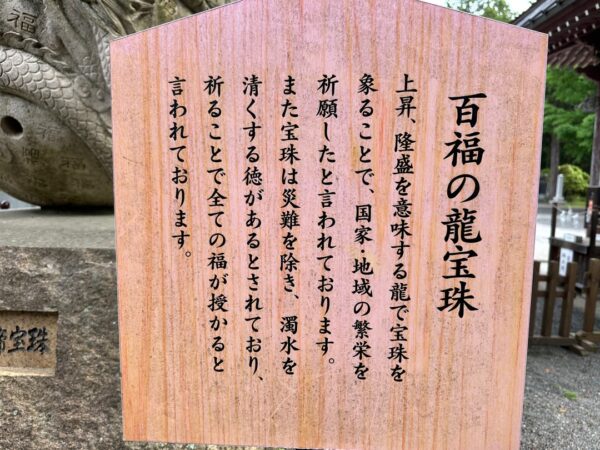 百福の龍宝珠
上昇、隆盛を意味する龍で宝珠を
象ることで、国家・地域の繁栄を
祈願したと言われております。
また宝珠は災難を除き、濁水を
清くする徳があるとされており、
祈ることで全ての福が授かると
言われております。
福
宝珠